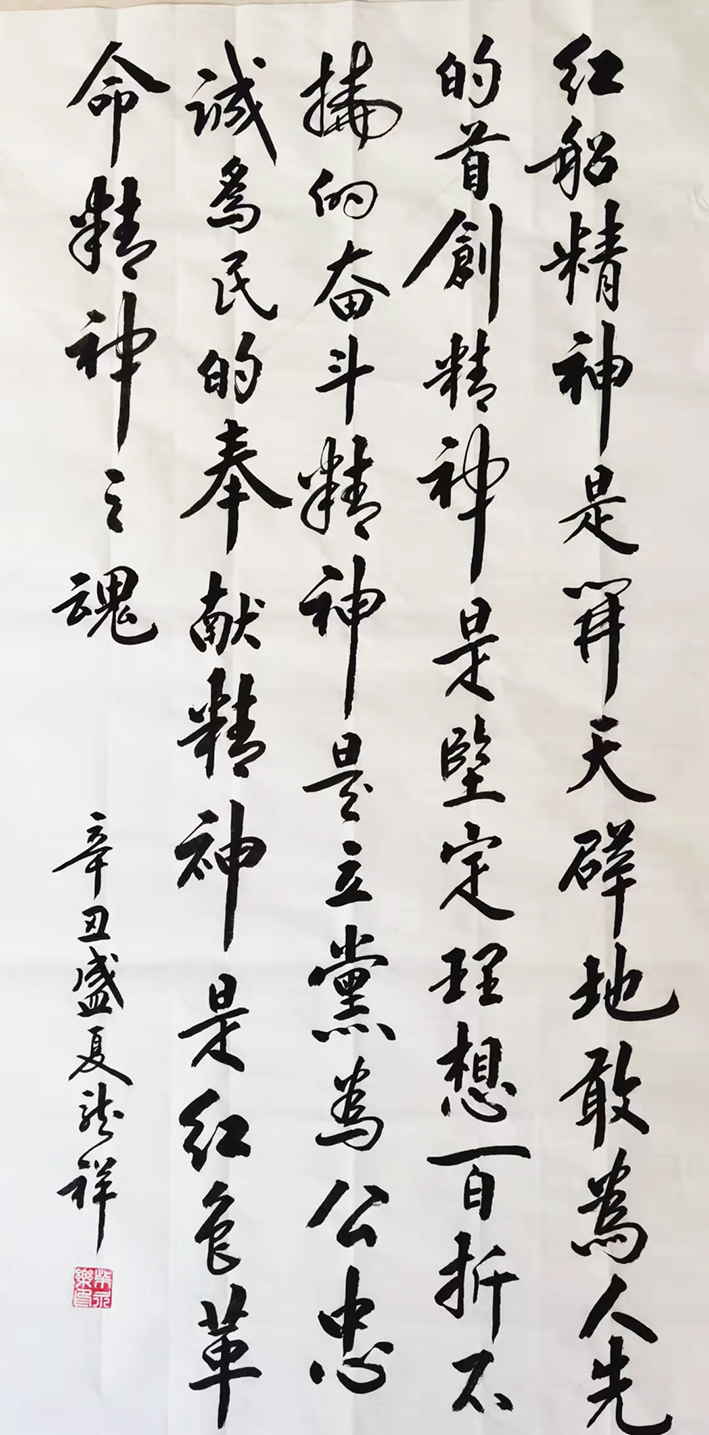 红船精神是開天辟地敢為人先
的首創精神是堅定理想百折不
撓的奋斗精神是立黨為公忠
诚為民的奉献精神是红色革
命精神之魂
辛丑盛夏龙祥